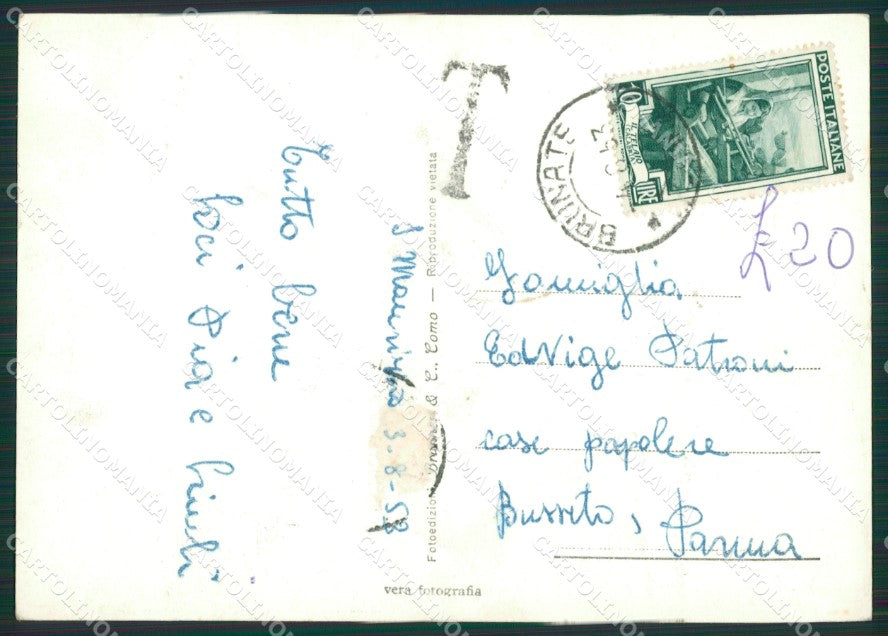 Tutto bene
baci Pia e
S Maurizio 3-8-53
Fotoedizio & C., Como — Riproduzione vietata
vera fotografia
T
BRUNATE
POSTE ITALIANE
LIRE
£20
Famiglia
EdVige Patroni
case popolere
Busseto, Parma
CARTOLINOMANIA